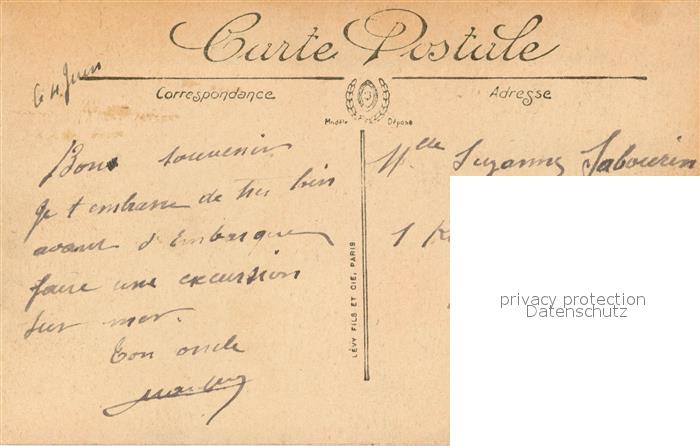 Carte Postale
Le 4 Juin
Correspondance
Adresse
Modèle Déposé
Bon souvenir
Je t'embrasse de très loin
avant d'Embarquer
faire une excursion
sur mer.
Ton oncle
Mlle Suzanne Sabourin
1
LÉVY FILS ET CIE, PARIS
privacy protection
Datenschutz